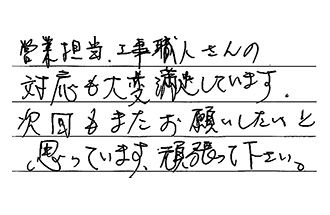 営業担当、工事職人さんの
対応も大変満足しています。
次回もまたお願いしたいと
思っています、頑張って下さい。